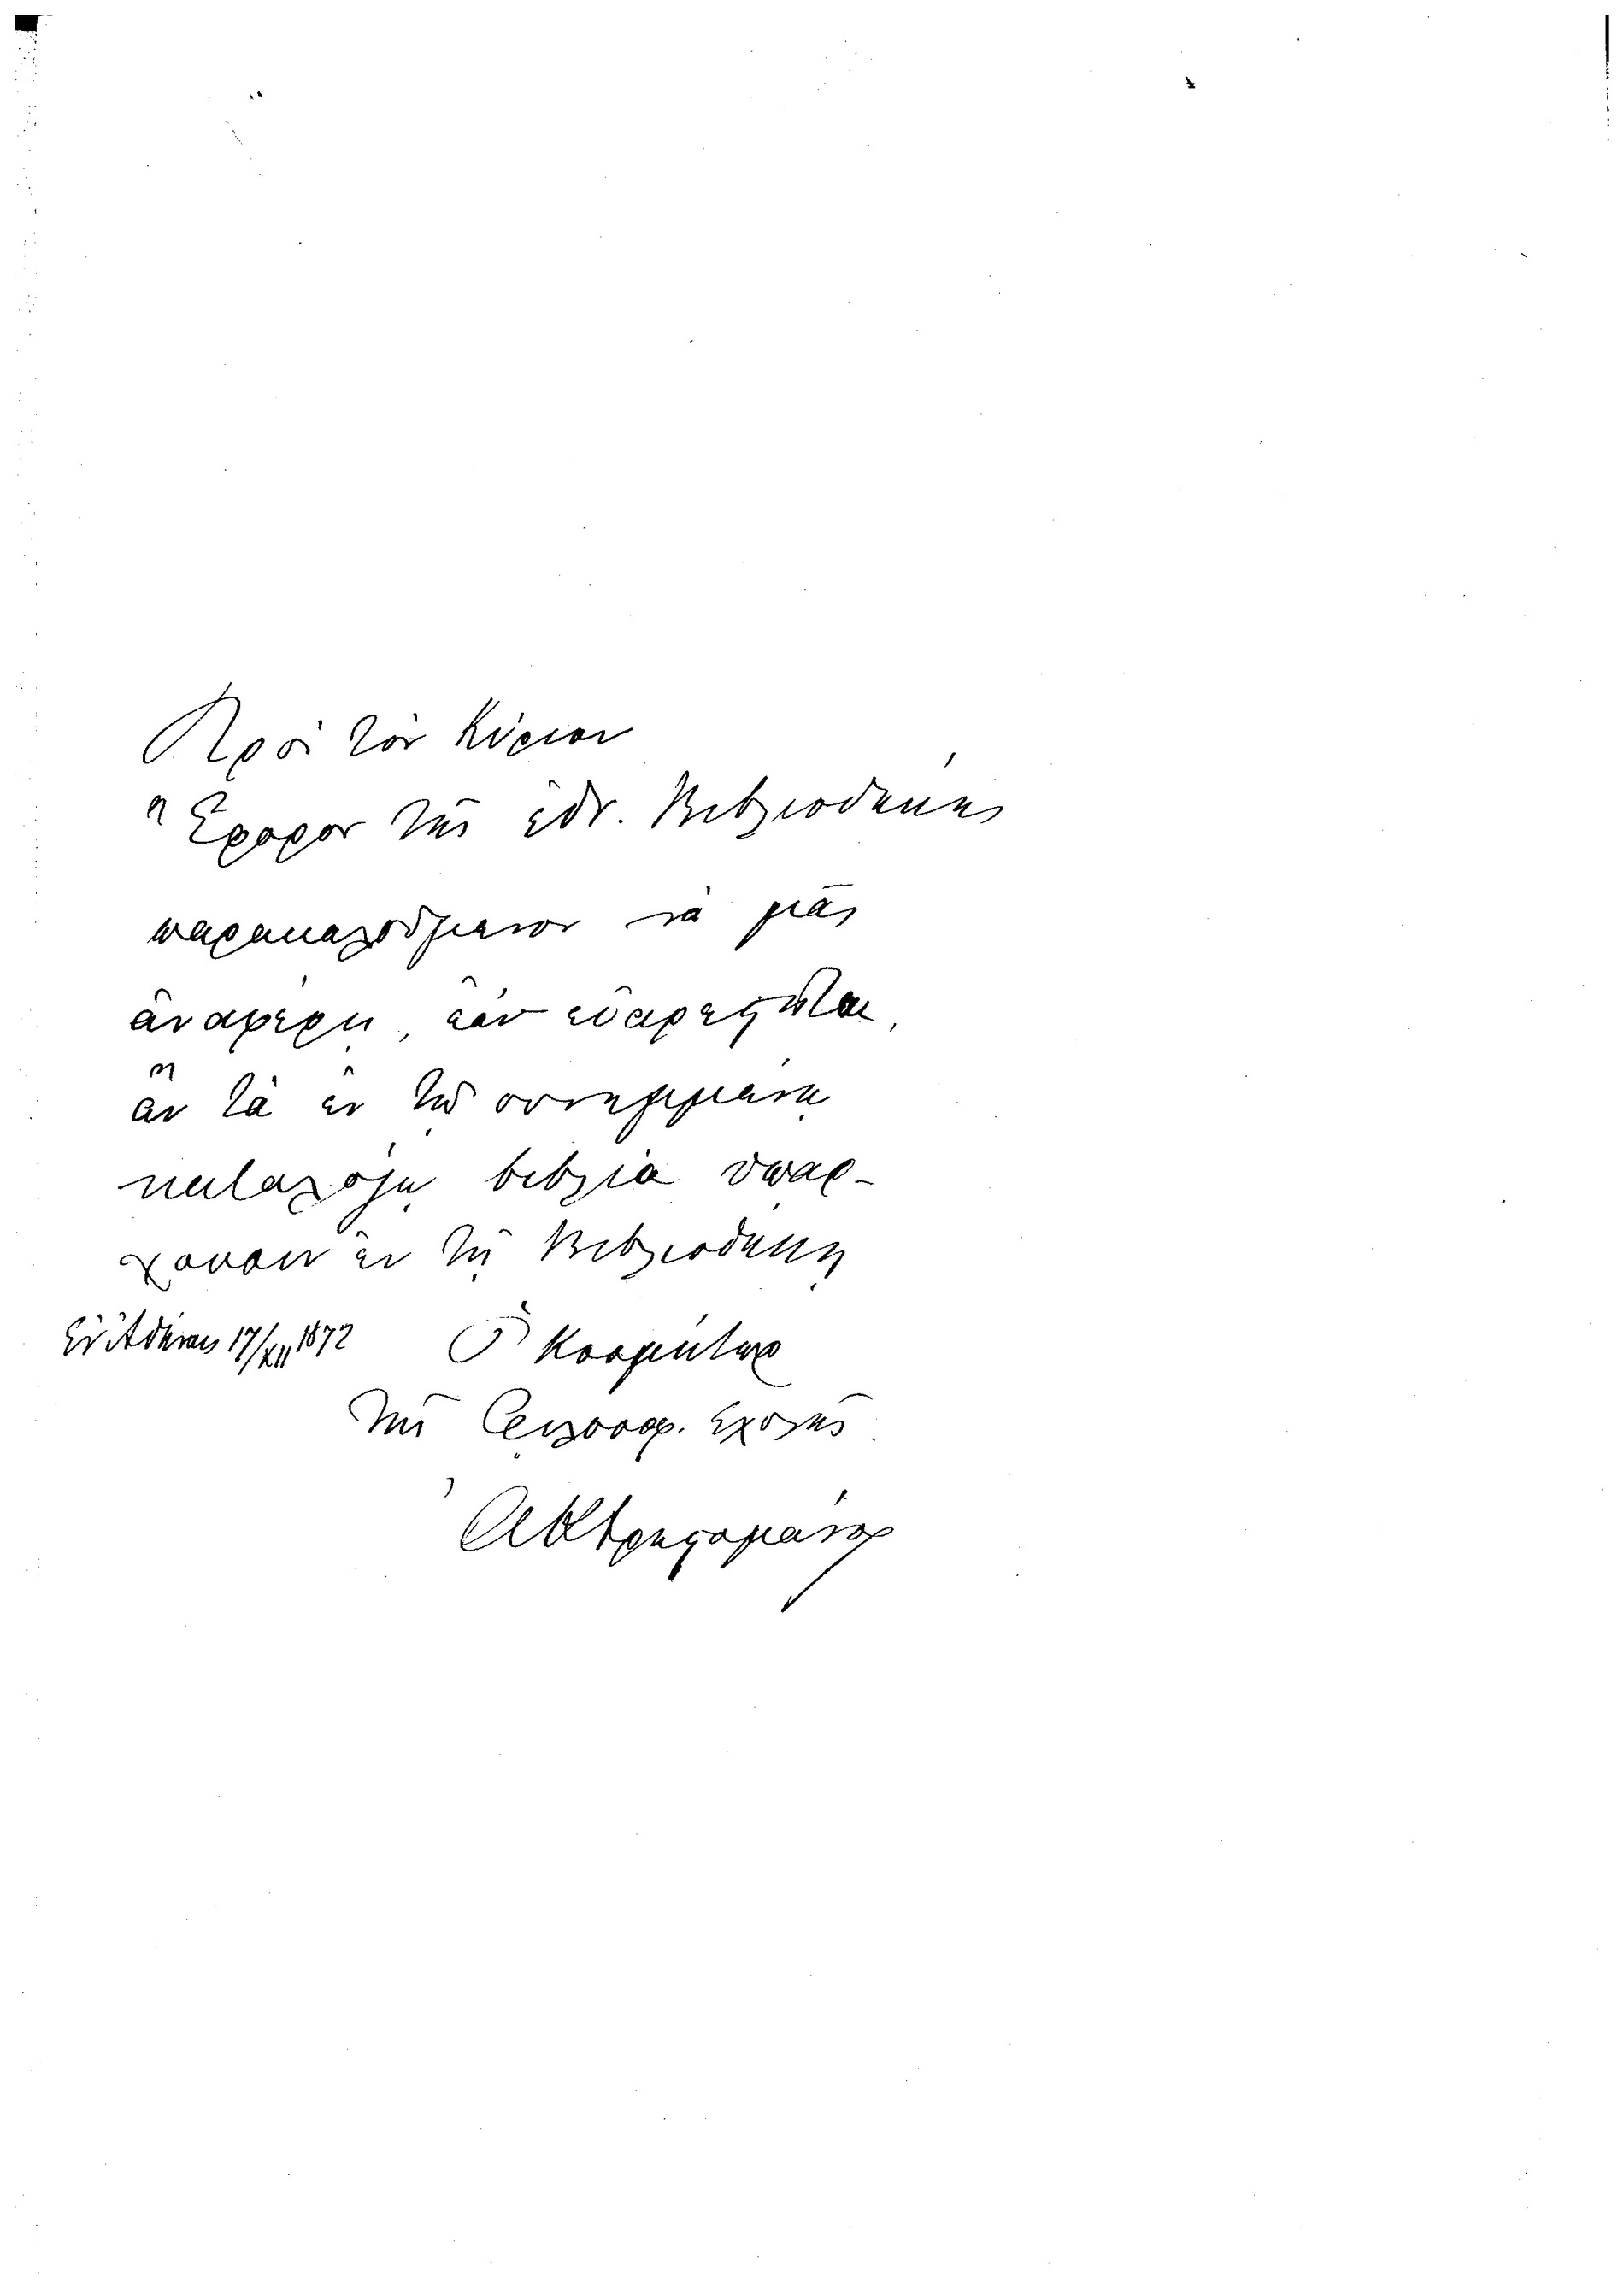 Πρὸς τὸν Κύριον
Ἔφορον τῆς ἐθν. Βιβλιοθήκης
παρακαλούμενον νὰ μᾶς
ἀναφέρῃ, ἐὰν εὐαρεστῆται,
ἂν τὰ ἐν τῷ συνημμένῳ
καταλόγῳ βιβλία ὑπάρ-
χουσιν ἐν τῇ Βιβλιοθήκῃ
Ἐν Ἀθήναις 17/XII 1872 Ὁ Κοσμήτωρ
τῆς Φιλοσοφ. Σχολῆς